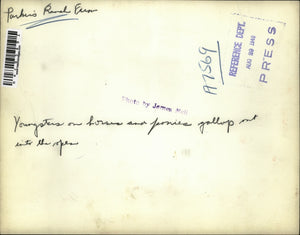 Parker's Ranch
A7569
REFERENCE DEPT.
AUG 29
PRESS
Photo by James
Youngsters on horses and ponies gallop out
into the open